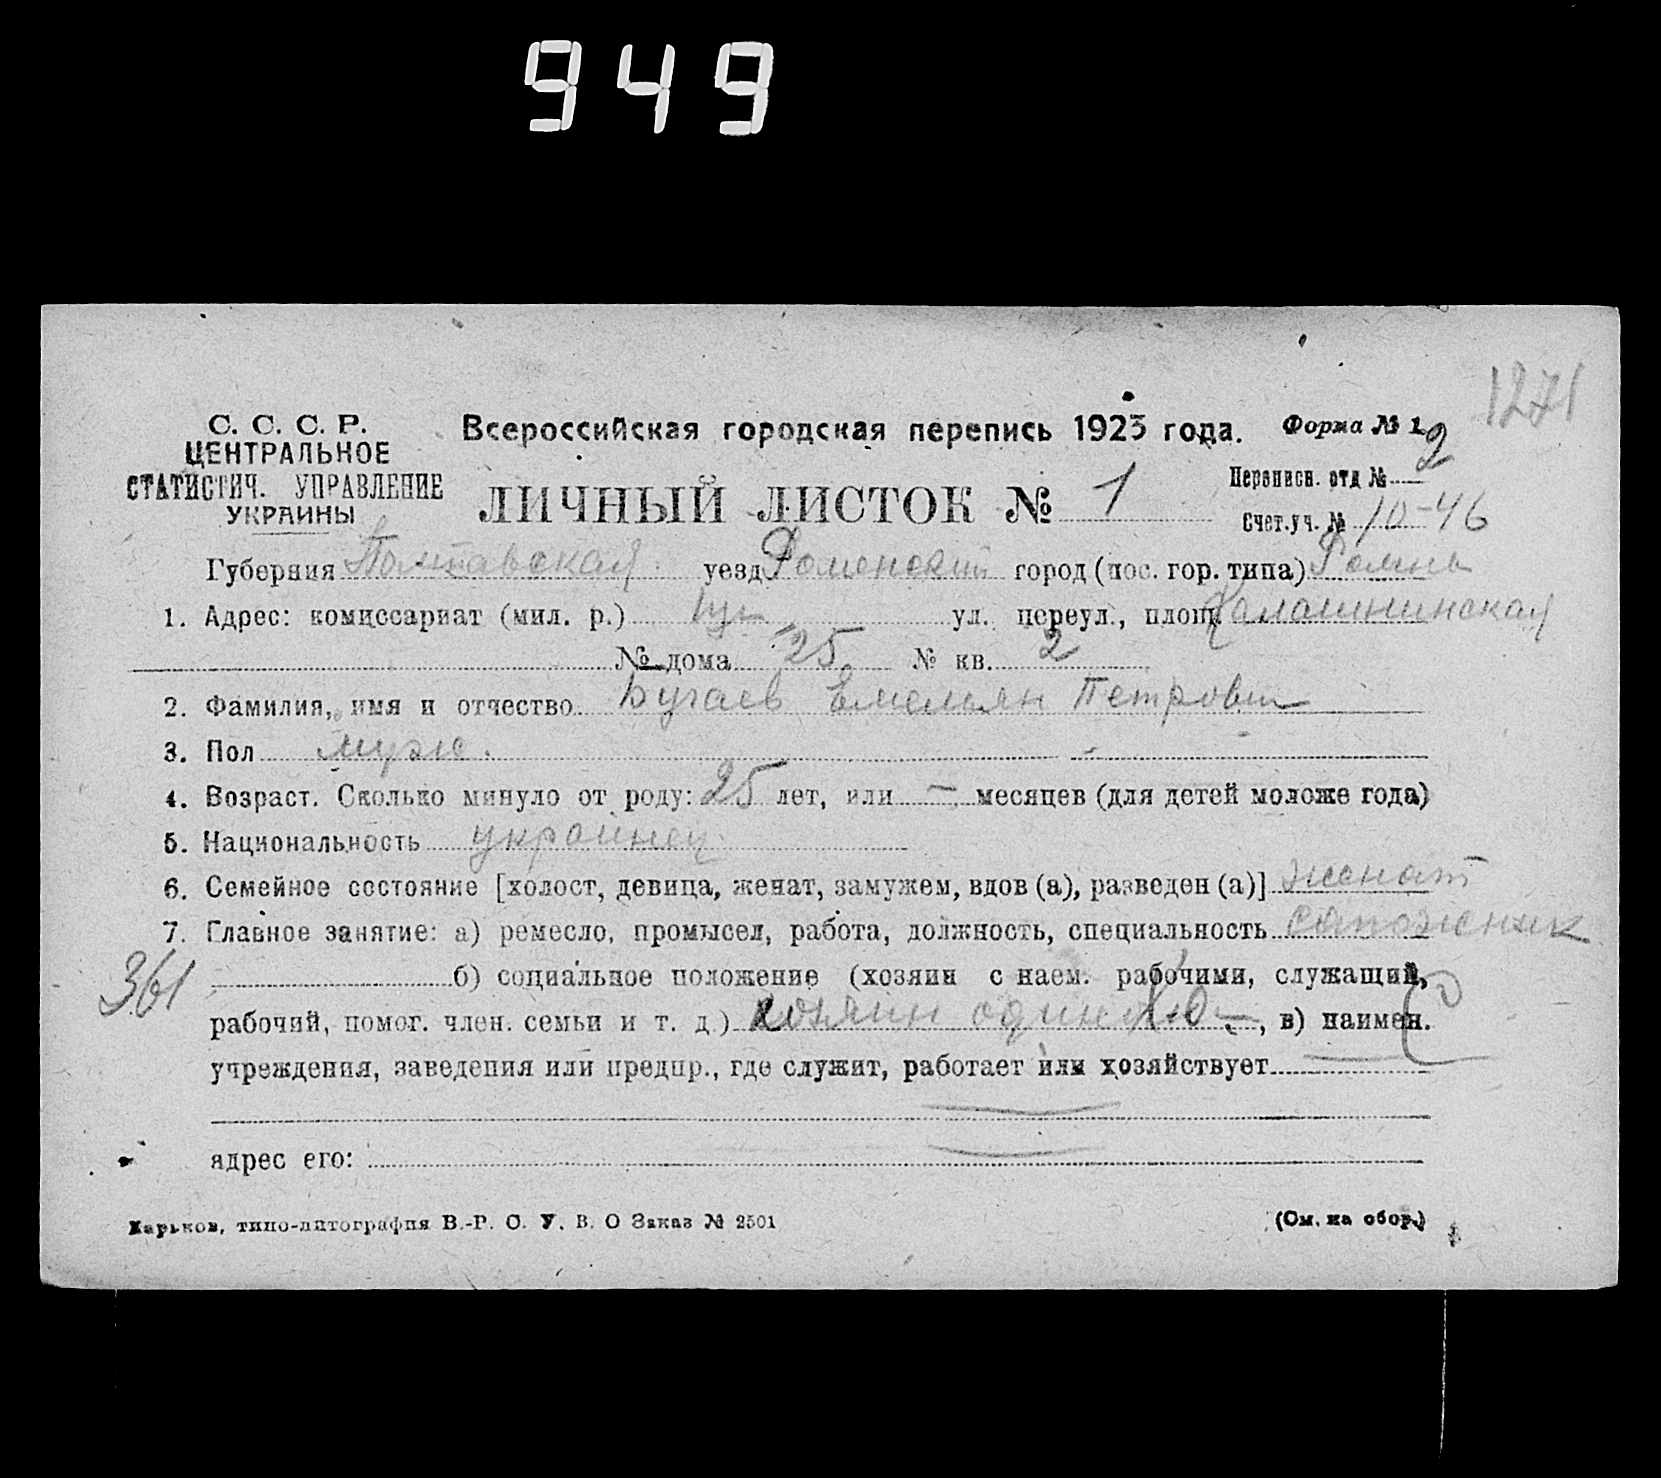 949
1271
С. С. С. Р.
ЦЕНТРАЛЬНОЕ
СТАТИСТИЧ. УПРАВЛЕНИЕ
УКРАИНЫ
Всероссийская городская перепись 1923 года.
Форма № 1
ЛИЧНЫЙ ЛИСТОК № 1
Переписн. отд № 2
Счет. уч. № 10-46
Губерния Полтавская уезд Роменский город (пос. гор. типа) Ромны
1. Адрес: комиссариат (мил. р.) ул. переул., площ.
№ дома 25 № кв. 2
2. Фамилия, имя и отчество Бугаев Емельян Петрович
3. Пол муж.
4. Возраст. Сколько минуло от роду: 25 лет, или — месяцев (для детей моложе года)
5. Национальность украинец
6. Семейное состояние [холост, девица, женат, замужем, вдов (а), разведен (а)] женат
7. Главное занятие: а) ремесло, промысел, работа, должность, специальность сапожник
361
б) социальное положение (хозяин с наем. рабочими, служащий,
рабочий, помог. член. семьи и т. д.) хозяин один, в) наимен.
учреждения, заведения или предпр., где служит, работает или хозяйствует
адрес его:
Харьков, типо-литография В.-Р. С. У. В. О Заказ № 2501
(См. на обор.)